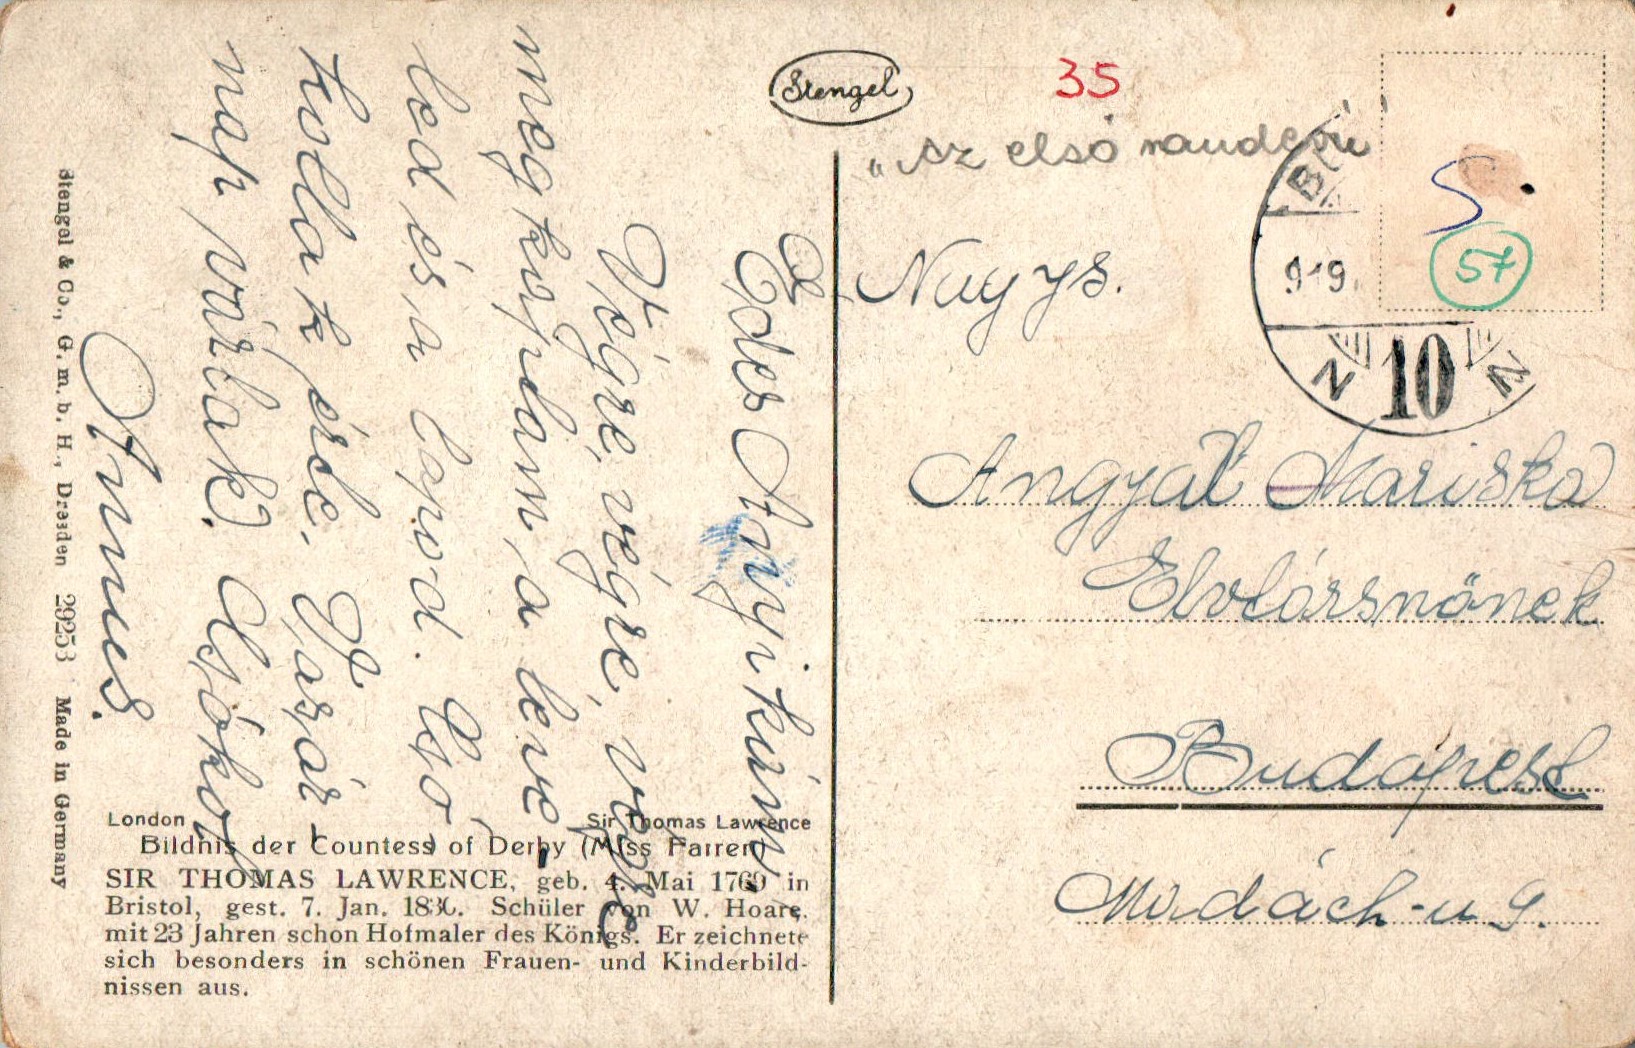 Stengel
35
„Az első randevu
57
919
10
N N
Nagys.
Angyal Mariska
Elvtársnőnek
Budapest
Madách-u 9.
Édes Anyikám!
Végre, végre, végre
megkaptam, a leve
led és a lapod. Cso
kollak érte. Vasár
nap várlak. Csókol
Annus.
London Sir Thomas Lawrence
Bildnis der Countess of Derby (Miss Farren)
SIR THOMAS LAWRENCE, geb. 4. Mai 1769 in
Bristol, gest. 7. Jan. 1830. Schüler von W. Hoare.
mit 23 Jahren schon Hofmaler des Königs. Er zeichnete
sich besonders in schönen Frauen- und Kinderbild-
nissen aus.
Stengel & Co., G. m. b. H., Dresden 29253 Made in Germany